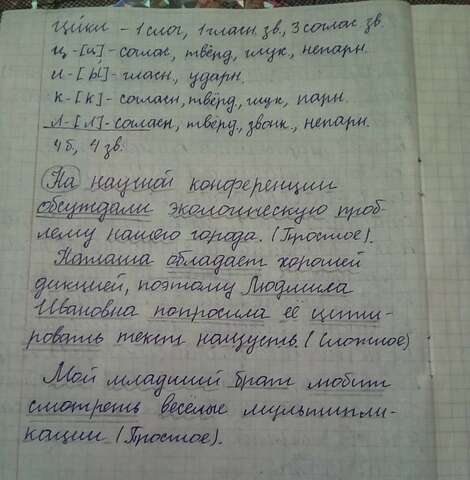 Цикл – 1 слог, 1 гласн. зв., 3 соглас. зв.
ц – [ц] – соглас, твёрд, глух, непарн.
и – [ы́] – гласн, ударн.
к – [к] – согласн, твёрд, глух, парн.
л – [л] – согласн, твёрд, звонк., непарн.
4 б, 4 зв.
На научной конференции
обсуждали экологическую проб-
лему нашего города. (Простое).
Наташа обладает хорошей
дикцией, поэтому Людмила
Ивановна попросила её цити-
ровать текст наизусть. (Сложное)
Мой младший брат любит
смотреть весёлые мультипли-
кации (Простое).